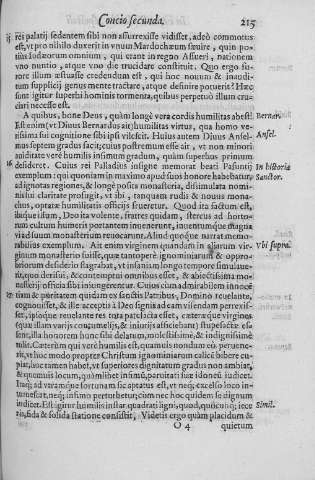 Concio secunda. 215
rei palatij sedentem sibi non assurrexisse vidisset, adeò commotus
est, vt pro nihilo duxerit in vnum Mardochæum sæuire, quin po-
tiùs Iudæorum omnium, qui erant in regno Assueri, nationem
vno nuntio, atque vno die trucidare constituit. Quo ergo fu-
rore illum æstuasse credendum est, qui hoc nouum & inaudi-
tum supplicij genus mente tractare, atque desinire potuerit? Hæc
sunt igitur superbi hominis tormenta, quibus perpetuò illum cru-
ciri necesse est.
A quibus, bone Deus, quàm longè vera cordis humilitas abest!
Bernar.
Est enim (vt Diuus Bernardus ait) humilitas virtus, qua homo ve-
rissima sui cognitione sibi ipsi vilescit. Huius autem Diuus Ansel-
Ansel.
mus septem gradus facit; cuius postremum esse ait, vt non minori
auiditate verè humilis infimum gradum, quàm superbus primum
desideret. Cuius rei Palladius insigne memorat beati Pafnutij
In historia
exemplum: qui quoniam in maximo apud suos honore habebatur,
Sanctor.
ad ignotas regiones, & longè posita monasteria, dissimulata nomi-
nis sui claritate profugit, vt ibi, tanquam rudis & nouus mona-
chus, optatæ humilitatis officijs frueretur. Quod ita factum est,
illuc usum, Deo ita volente, fratres quidam, stercus ad horto-
rum cultum humeris portantem inuenerunt, inuentumque magna
vi ad suum monasterium reuocarunt. Aliud quoque narrat memo-
rabilius exemplum. Ait enim virginem quandam in aliarum vir-
Vbi supra.
ginum monasterio fuisse, quæ tantoperè ignominiarum & oppro-
briorum desiderio flagrabat, vt insaniam longo tempore simulaue-
rit, quo derisui, & contemptui omnibus esset, & abiectissima mo-
nasterij officia sibi iniungerentur. Cuius cùm admirabilem innocē
tiam & puritatem quidam ex sanctis Patribus, Domino reuelante,
cognouisset, & ille accepta à Deo signa ad eam visendam perrexis-
set, ipsoque reuelante res tota patefacta esset, cæteræque virgines
(quæ illam varijs contumelijs, & iniurijs affecerant) stupefactæ es-
sent, illa honorem hunc sibi delatum, molestissimè, & indignissimè
tulit. Cæterùm qui verè humilis est, quamuis nondum eò peruene-
rit, vt hoc modo propter Christum ignominiarum calicē bibere cu-
piat, hoc tamen habet, vt superiores dignitatum gradus non ambiat,
& quemuis locum, quamlibet infimū, paruitati suæ idoneū iudicet.
Itaq; ad vtramque fortunam sic aptatus est, vt neq; excelso loco in-
tumescat, neq; infimo perturbetur; cum nec hoc quidem se dignum
iudicet. Est igitur humilis instar quadrati ligni, quod, quocunq; iece
Simil.
ris, fida & solida statione consistit. Videtis ergo quàm placidum &
O 4 quietum